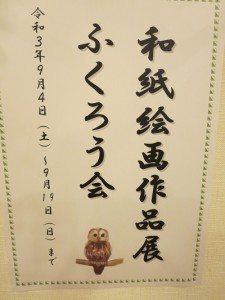 和紙絵画作品展
ふくろう会
令和3年9月4日(土)～9月19日(日)まで